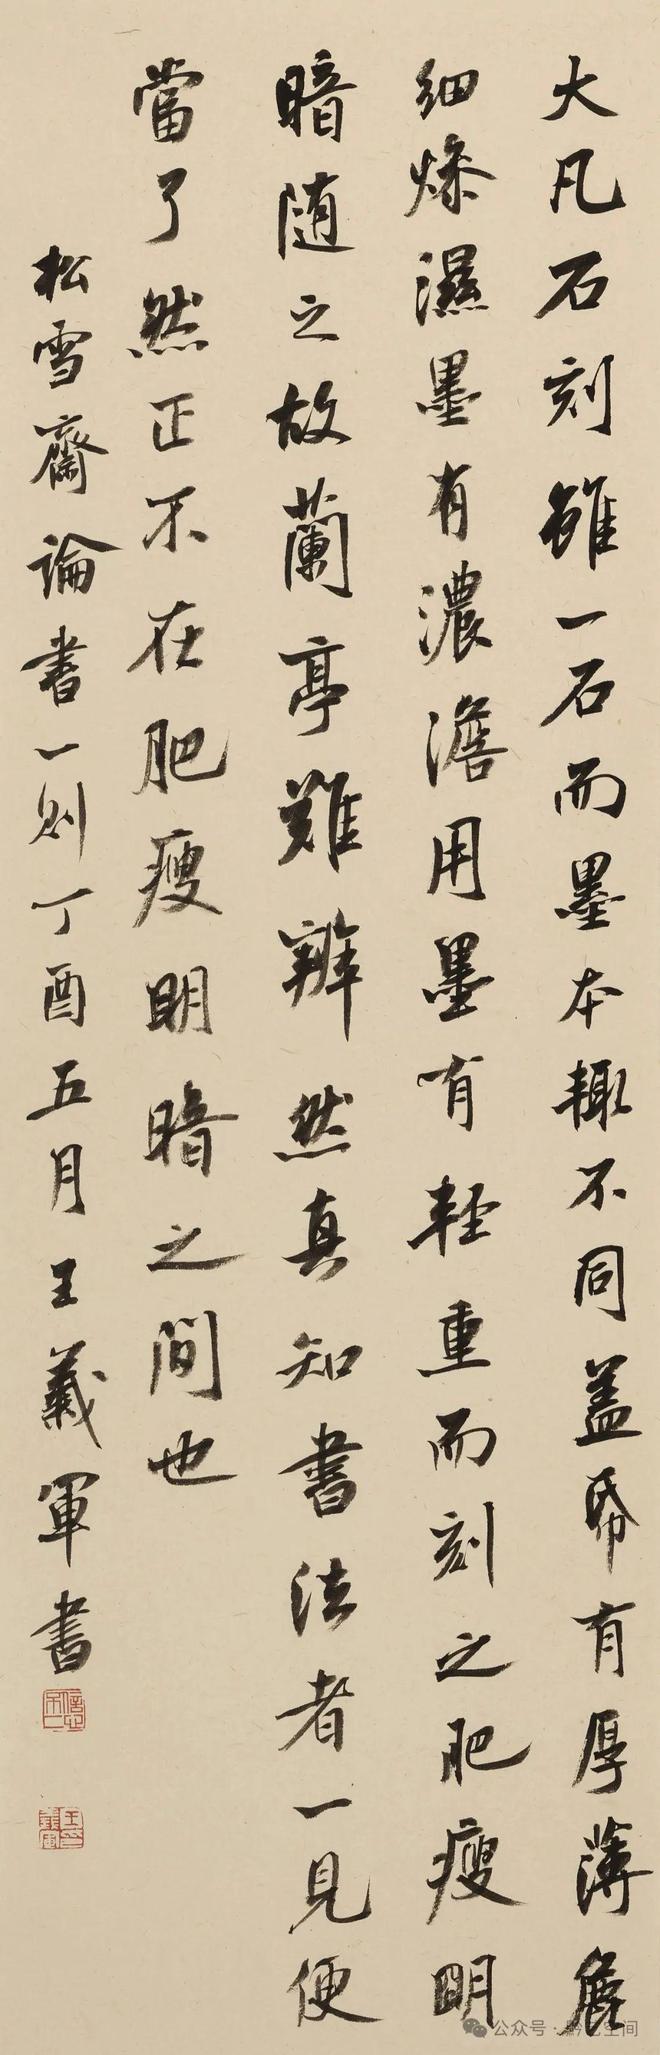 大凡石刻雖一石而墨本輒不同蓋帋有厚薄麁
細燥濕墨有濃澹用墨有輕重而刻之肥瘦明
暗随之故蘭亭難辨然真知書法者一見便
當了然正不在肥瘦明暗之間也
松雪齋論書一則丁酉五月王義軍書
王義軍
公众号·空间